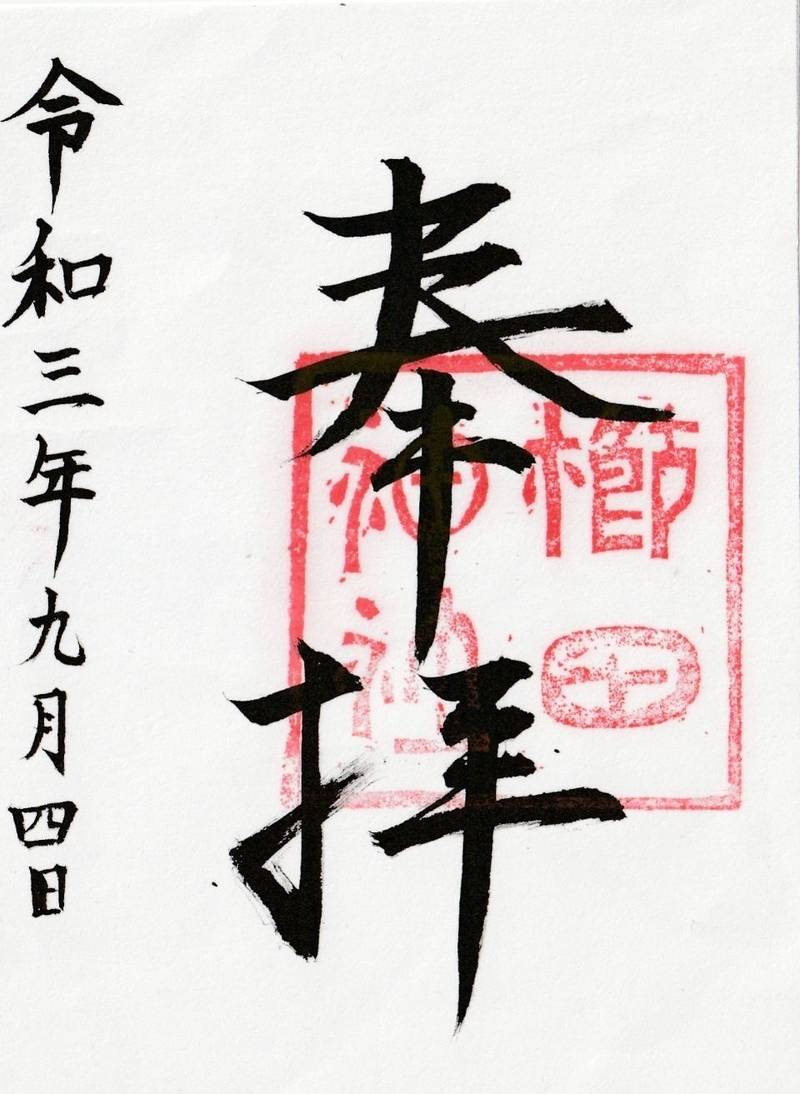 奉拝
櫛田
神社
令和三年九月四日